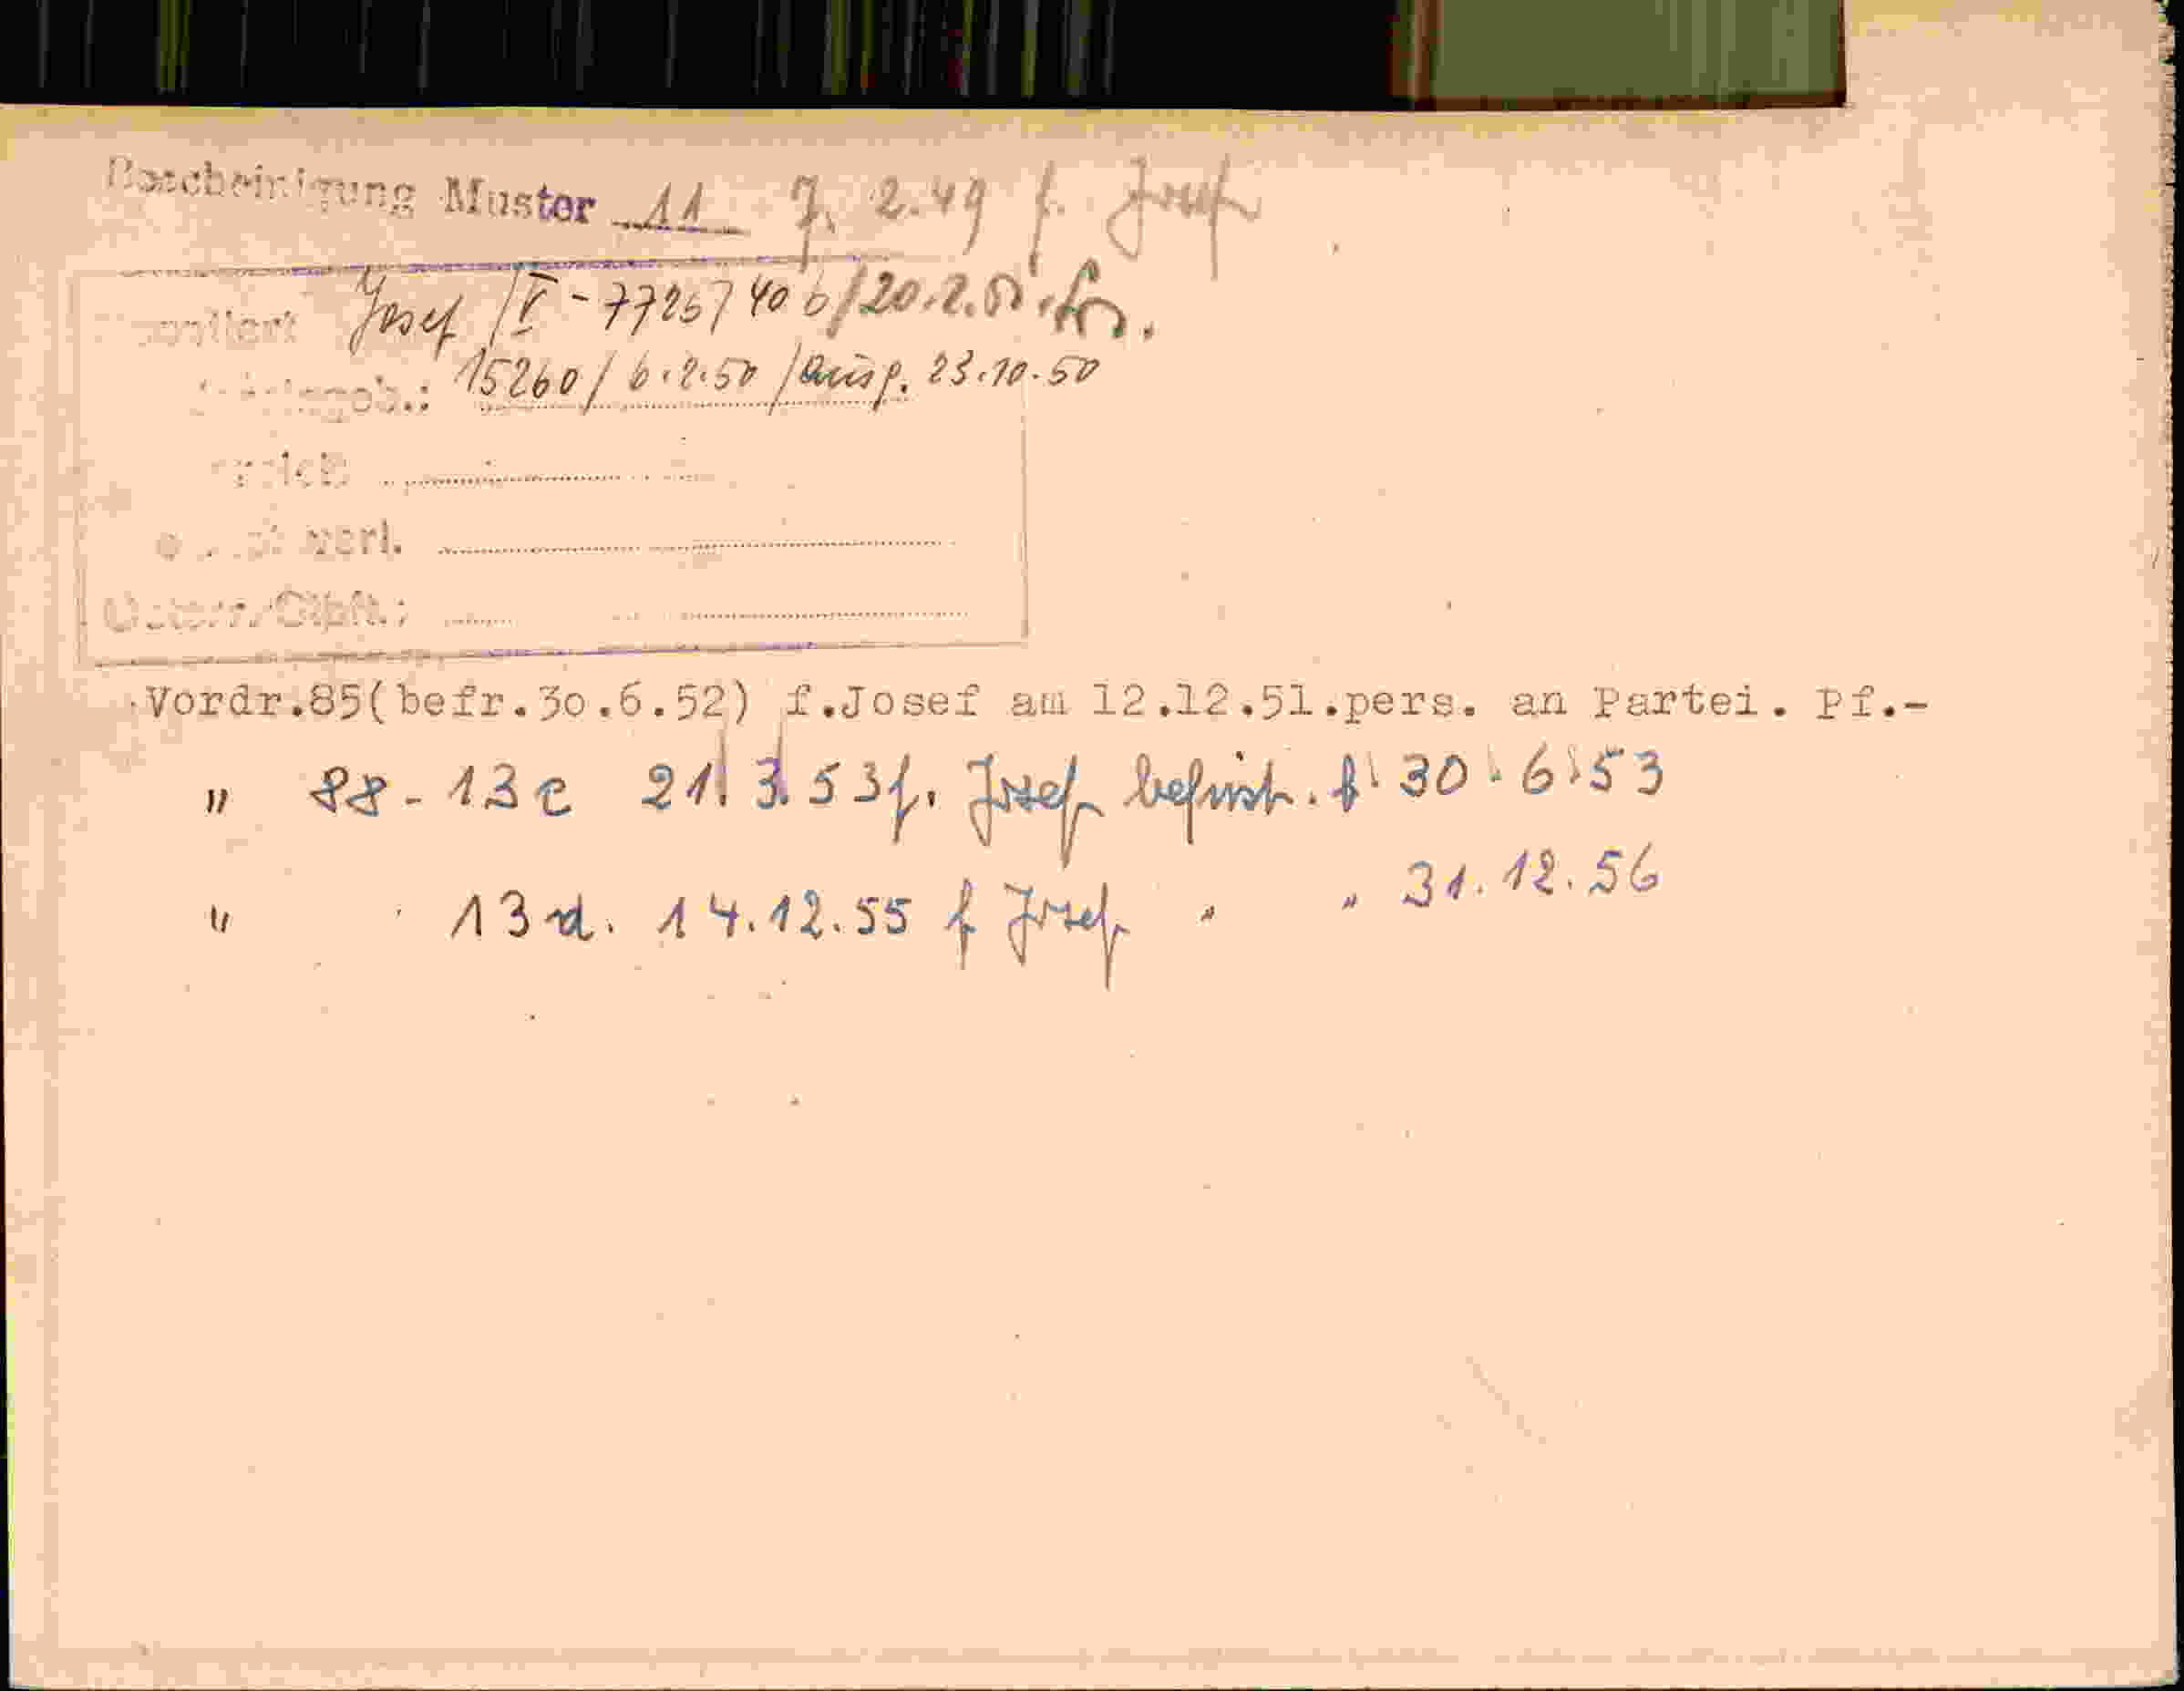 Bescheinigung Muster 11 7. 2.49 f. Josef
Josef / V - 7726/40 b/20.2.
15260/ 6.2.50 /Ausg. 23.10.50
verl.
Vordr.85(befr.30.6.52) f.Josef am 12.12.51.pers. an Partei. Pf.-
" 88 - 13 e 21. 3. 53 f. Josef befrist. b. 30. 6. 53
" 13 d. 14.12.55 f Josef " " 31.12.56